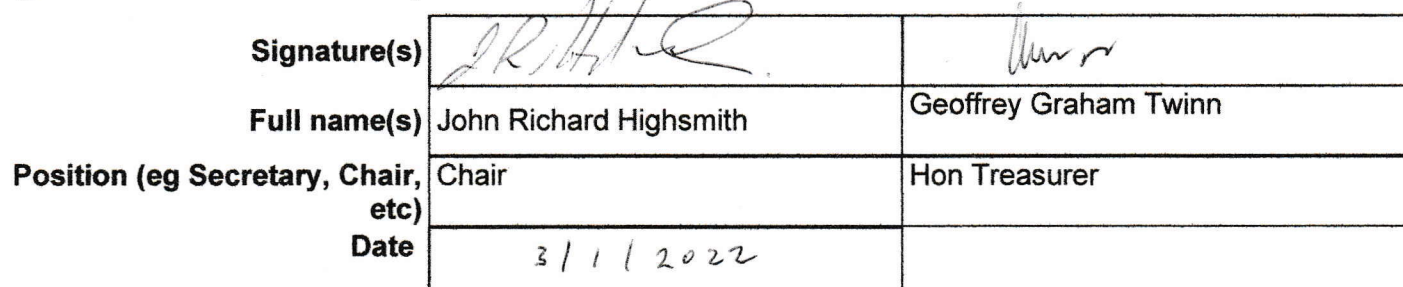 Signature(s)
Full name(s) John Richard Highsmith Geoffrey Graham Twinn
Position (eg Secretary, Chair, Chair Hon Treasurer
etc)
Date 3/1/2022